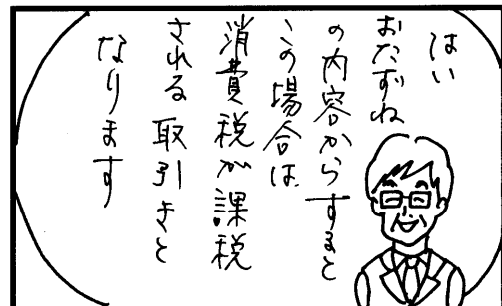 はい
おたずね
の内容からすると
この場合は、
消費税が課税
される取引きと
なります